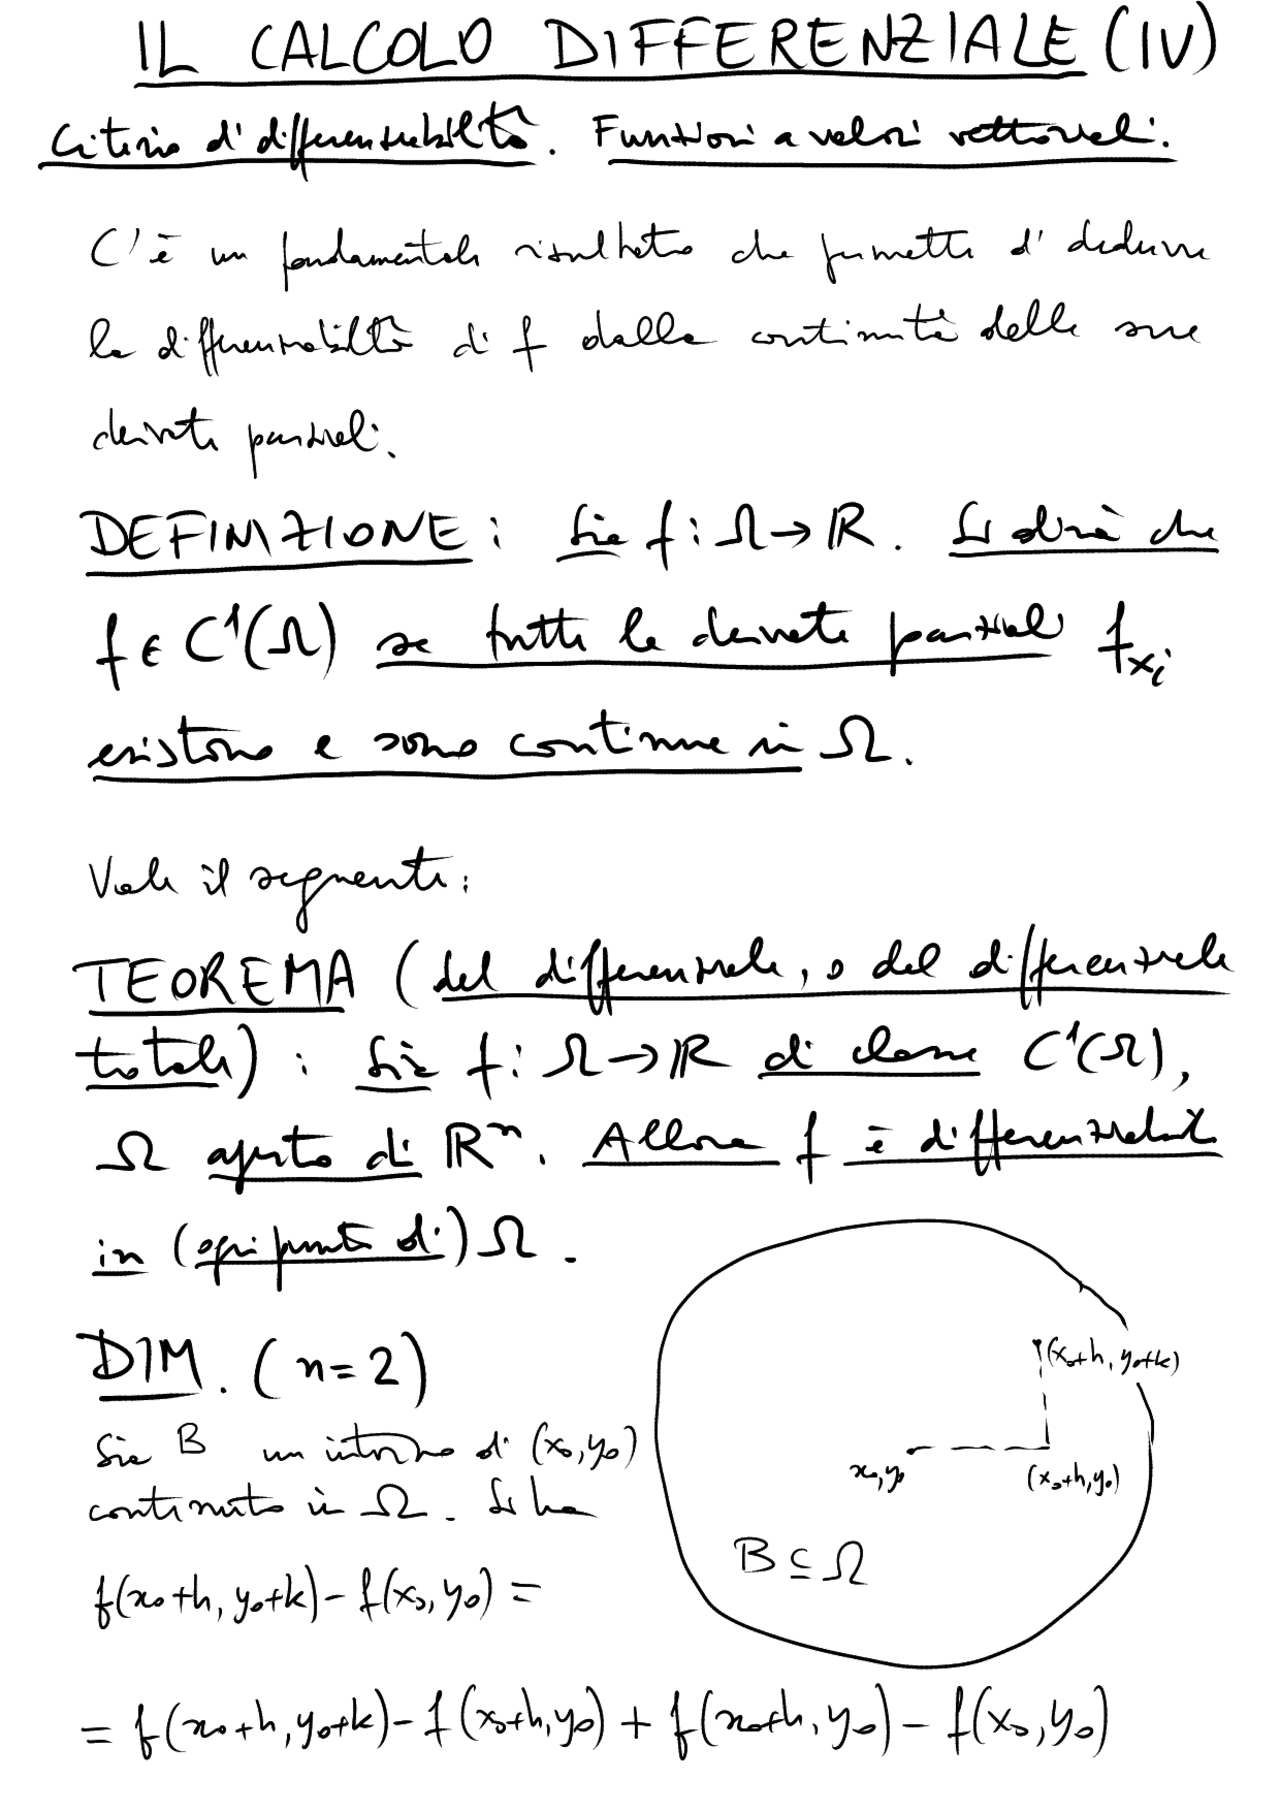 IL CALCOLO DIFFERENZIALE (IV)
Criterio di differenziabilità. Funzioni a valori vettoriali.
C'è un fondamentale risultato che permette di dedurre
la differenziabilità di f dalla continuità delle sue
derivate parziali.
DEFINIZIONE: Sia f: Ω → ℝ. Si dirà che
f ∈ C¹(Ω) se tutte le derivate parziali f_{x_i}
esistono e sono continue in Ω.
Vale il seguente:
TEOREMA (del differenziale, o del differenziale
totale): Sia f: Ω → ℝ di classe C¹(Ω),
Ω aperto di ℝⁿ. Allora f è differenziabile
in (ogni punto di) Ω.
DIM. (n=2)
Sia B un intorno di (x₀,y₀)
contenuto in Ω. Si ha
f(x₀+h, y₀+k) - f(x₀, y₀) =
(x₀+h, y₀+k)
x₀,y₀
(x₀+h,y₀)
B ⊆ Ω
= f(x₀+h, y₀+k) - f(x₀+h, y₀) + f(x₀+h, y₀) - f(x₀, y₀)